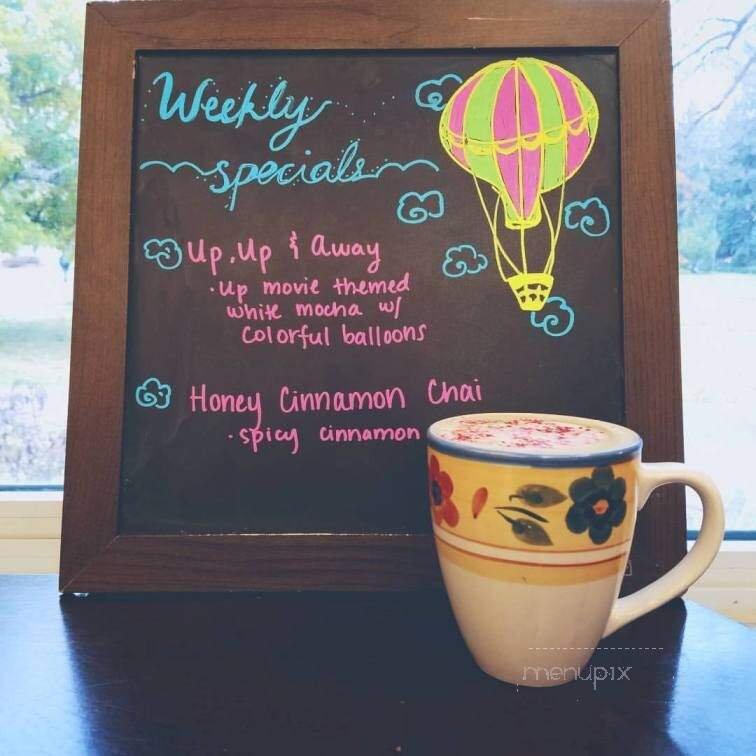 Weekly
specials
Up, Up & away
• Up movie themed
white mocha w/
colorful balloons
Honey Cinnamon Chai
• spicy cinnamon
menupix